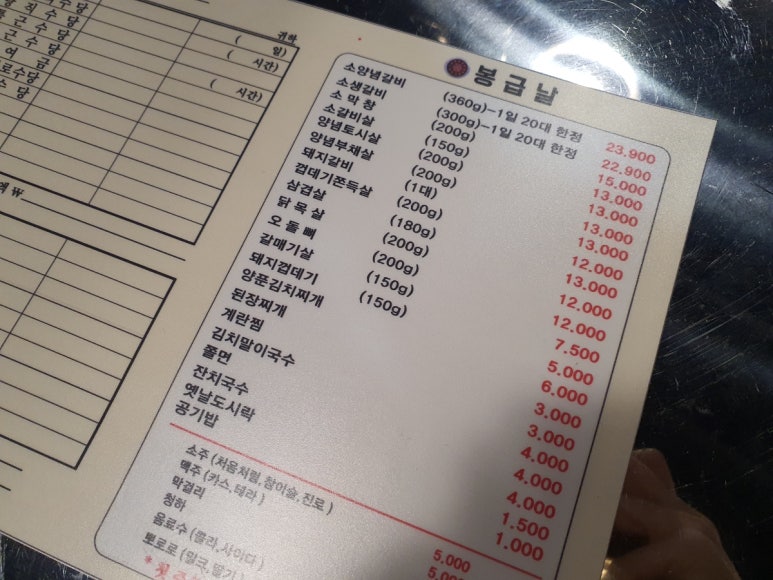 귀하
( 일)
( 시간)
( 시간)
근 수 당
수 당
액 ₩
봉급날
소양념갈비 (360g)-1일 20대 한정
소생갈비 (300g)-1일 20대 한정
소 막 창 (200g)
소갈비살 (150g)
양념토시살 (200g)
양념부채살 (200g)
돼지갈비 (1대)
껍데기쫀득살 (200g)
삼겹살 (180g)
닭 목 살 (200g)
오 돌 뼈 (200g)
갈매기살 (150g)
돼지껍데기 (150g)
양푼김치찌개
된장찌개
계란찜
김치말이국수
쫄면
잔치국수
옛날도시락
공기밥
23.900
22.900
15.000
13.000
13.000
13.000
12.000
13.000
12.000
12.000
7.500
5.000
6.000
3.000
3.000
4.000
4.000
4.000
1.500
1.000
소주 (처음처럼,참이슬,진로) 5.000
맥주 (카스,테라) 5.000
막걸리
청하
음료수 (콜라,사이다)
뽀로로 (밀크,딸기)